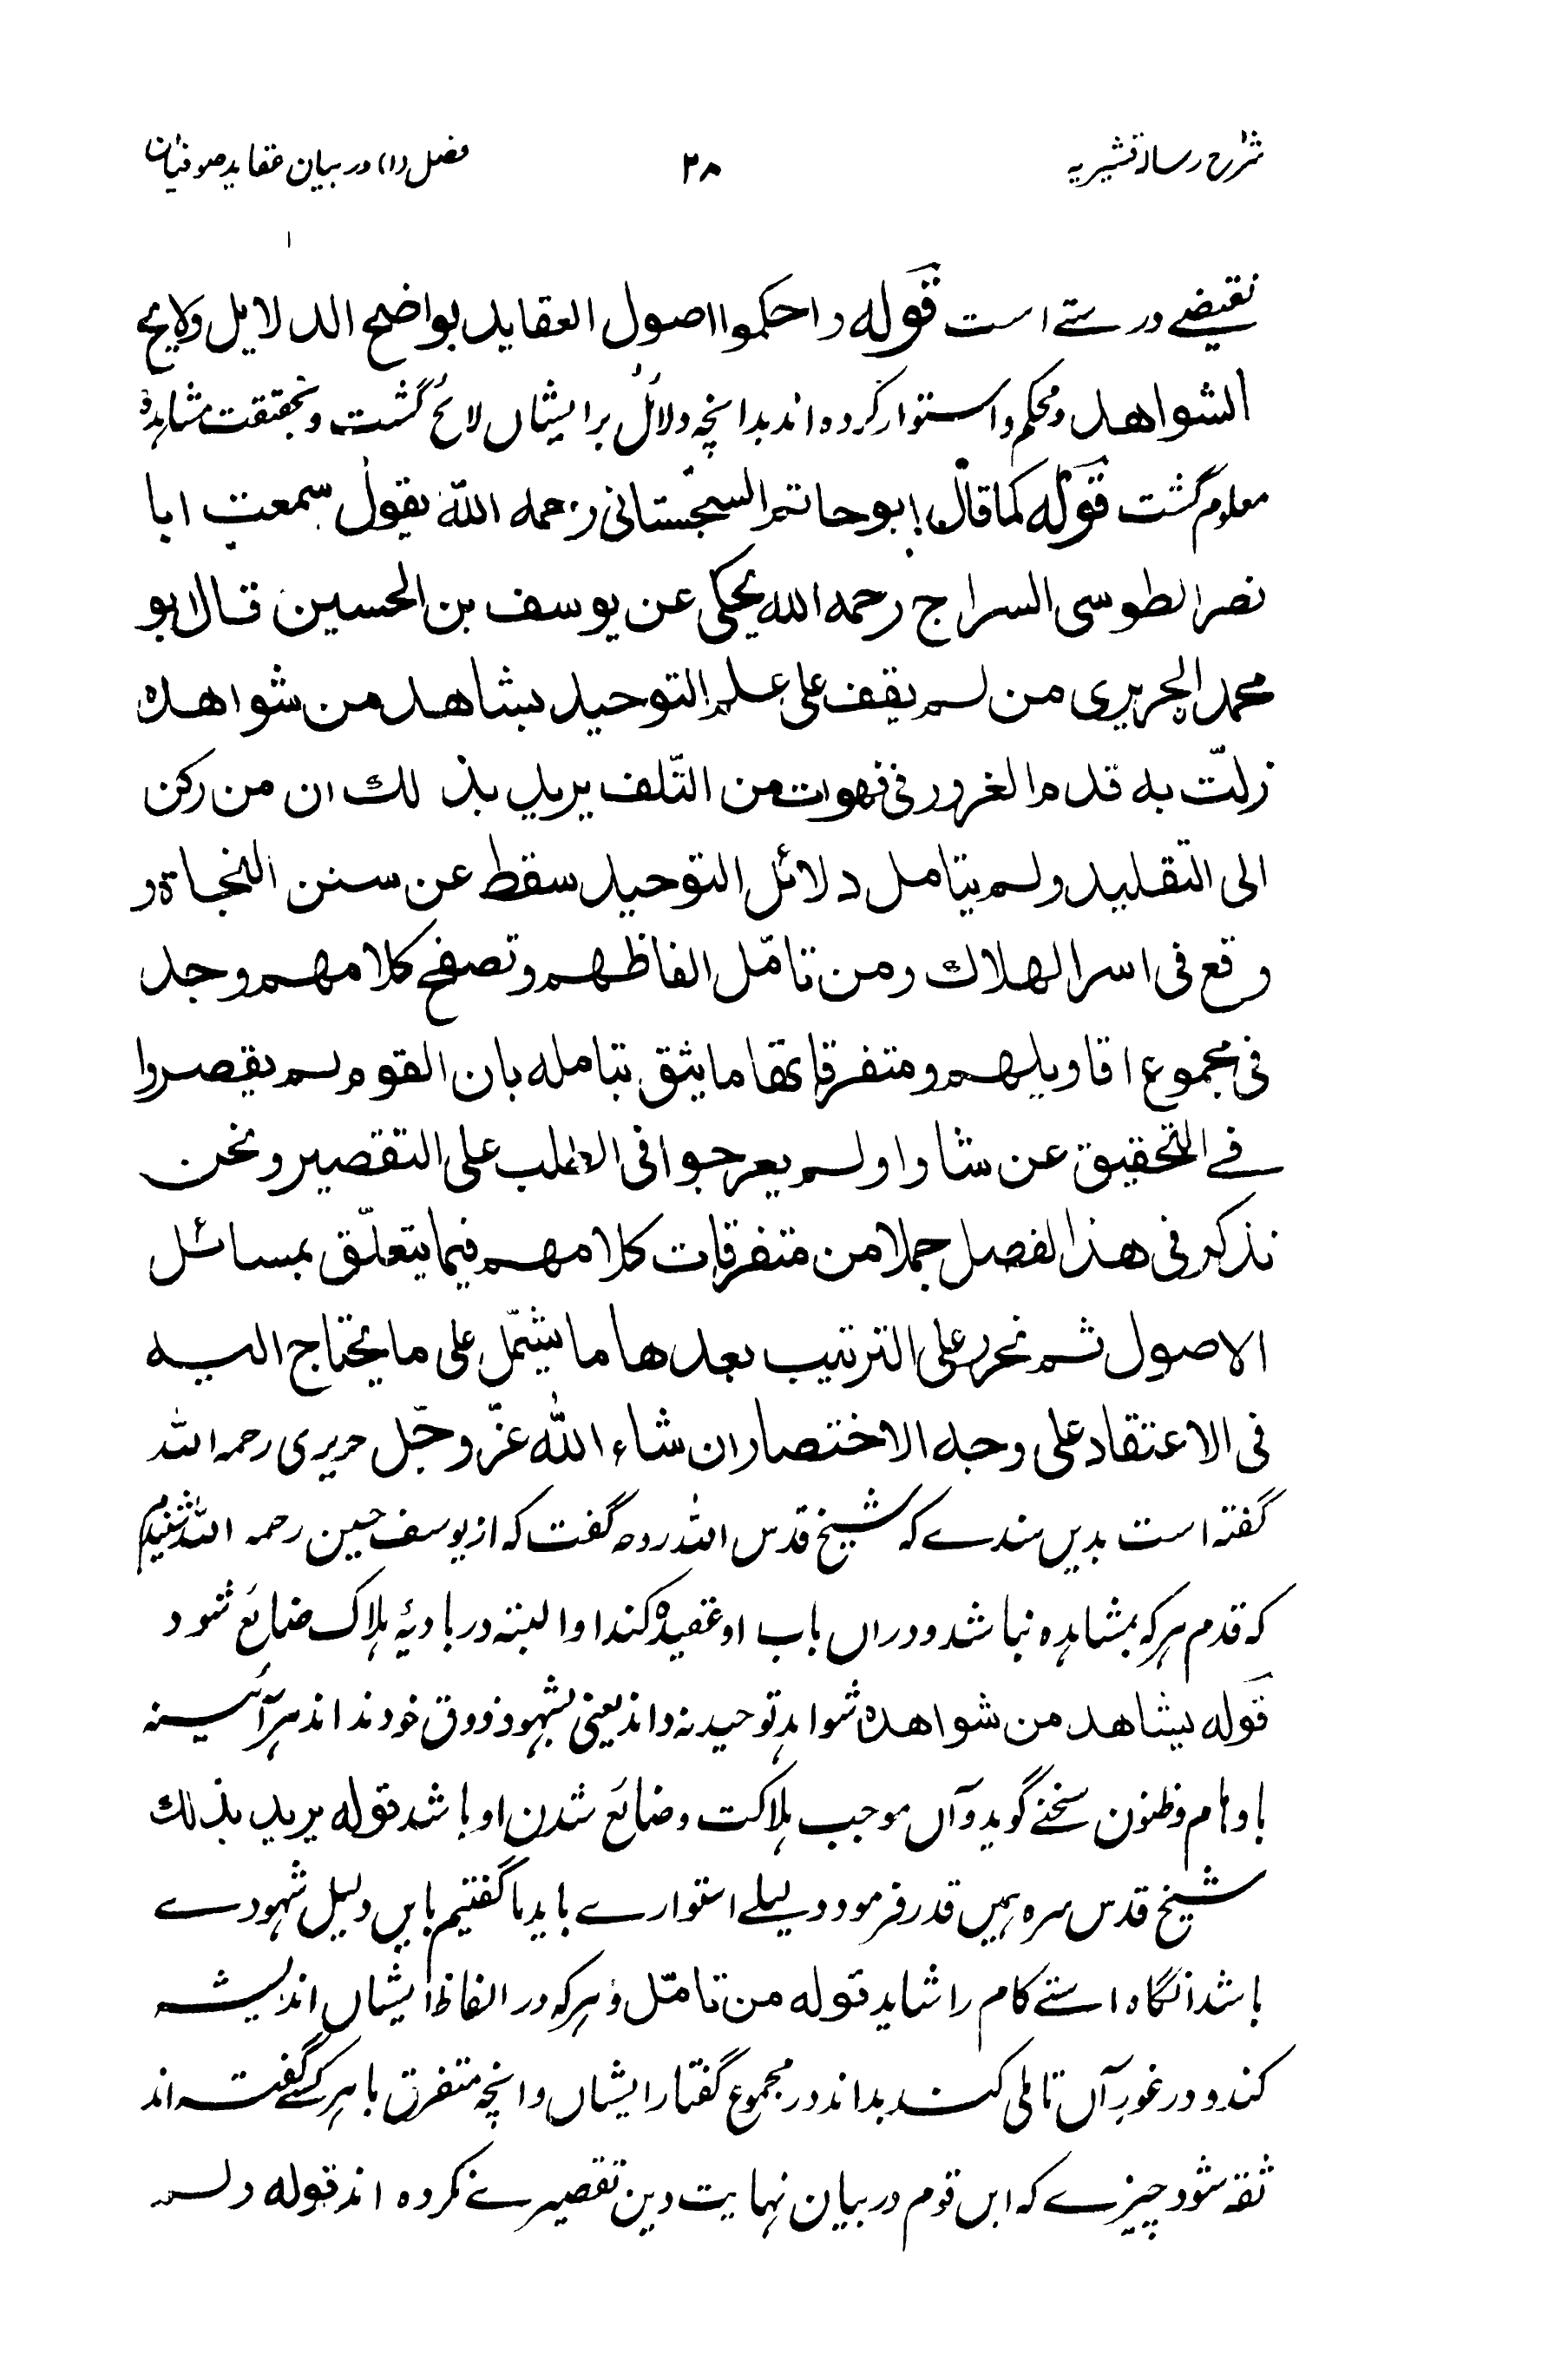 شرح رسالہ قشیریہ
۲۸
فصل (۱) در بیان عقاید صوفیان
نقیضے درستے است قوله واحکموا اصول العقاید بواضح الدلایل ولایح
الشواهد ومحکم واستوار کرده اند بدانچه دلائل برایشاں لائح گشت وبحقیقت مشاہدۂ
معلوم گشت قوله کما قال ابو حاتم السجستانی رحمه الله یقول سمعت ابا
نصر الطوسی السراج رحمه الله یحکی عن یوسف بن الحسین قال ابو
محمد الجریری من لم یقف علی علم التوحید بشاهد من شواهده
زلّت به قدم الغرور فی فهوات من التّلف یرید بذلك ان من رکن
الی التقلید ولم یتامل دلائل التوحید سقط عن سنن النجاة و
وقع فی اسر الهلاك ومن تامّل الفاظهم وتصفح کلامهم وجد
فی مجموع اقاویلهم ومتفرقاتها ما یثق بتامله بان القوم لم یقصروا
فے التحقیق عن شاو اولم یعرجوا فی الطلب علی التقصیر ونحن
نذکر فی هذا الفصل جملا من متفرقات کلامهم فیما یتعلّق بمسائل
الاصول ثم نحرر علی الترتیب بعدها ما یشتمل علی ما یحتاج الیه
فی الاعتقاد علی وجه الاختصار ان شاء الله عزّ وجّل حریری رحمہ اللہ
گفته است بدیں سندے که شیخ قدس الله روحه گفت که از یوسف حسین رحمہ اللہ شنیدم
که قدم ہرکه بمشاہدہ نباشد ودراں باب او عقیدہ کند او البته در بادیۂ ہلاک ضائع شود
قوله بشاهد من شواهده شواہد توحید نداند یعنی بشہود ذوق خود نداند ہرآئینہ
باوہام وظنون سخنے گوید وآں موجب ہلاکت وضائع شدن او باشد قوله یرید بذلك
شیخ قدس سرہ ہمیں قدر فرمود دلیلے استوارے باید ما گفتیم بایں دلیل شہودے
باشد آنگاه استے کام را شاید قوله من تامّل وہرکه در الفاظ ایشاں اندیشه
کند و در غور آں تاملی کند بداند در مجموع گفتار ایشاں وانچه متفرق با ہر کسے گفته اند
ثقه شود چیزے که ایں قوم در بیان نہایت دین تقصیرے نکرده اند قوله ولم